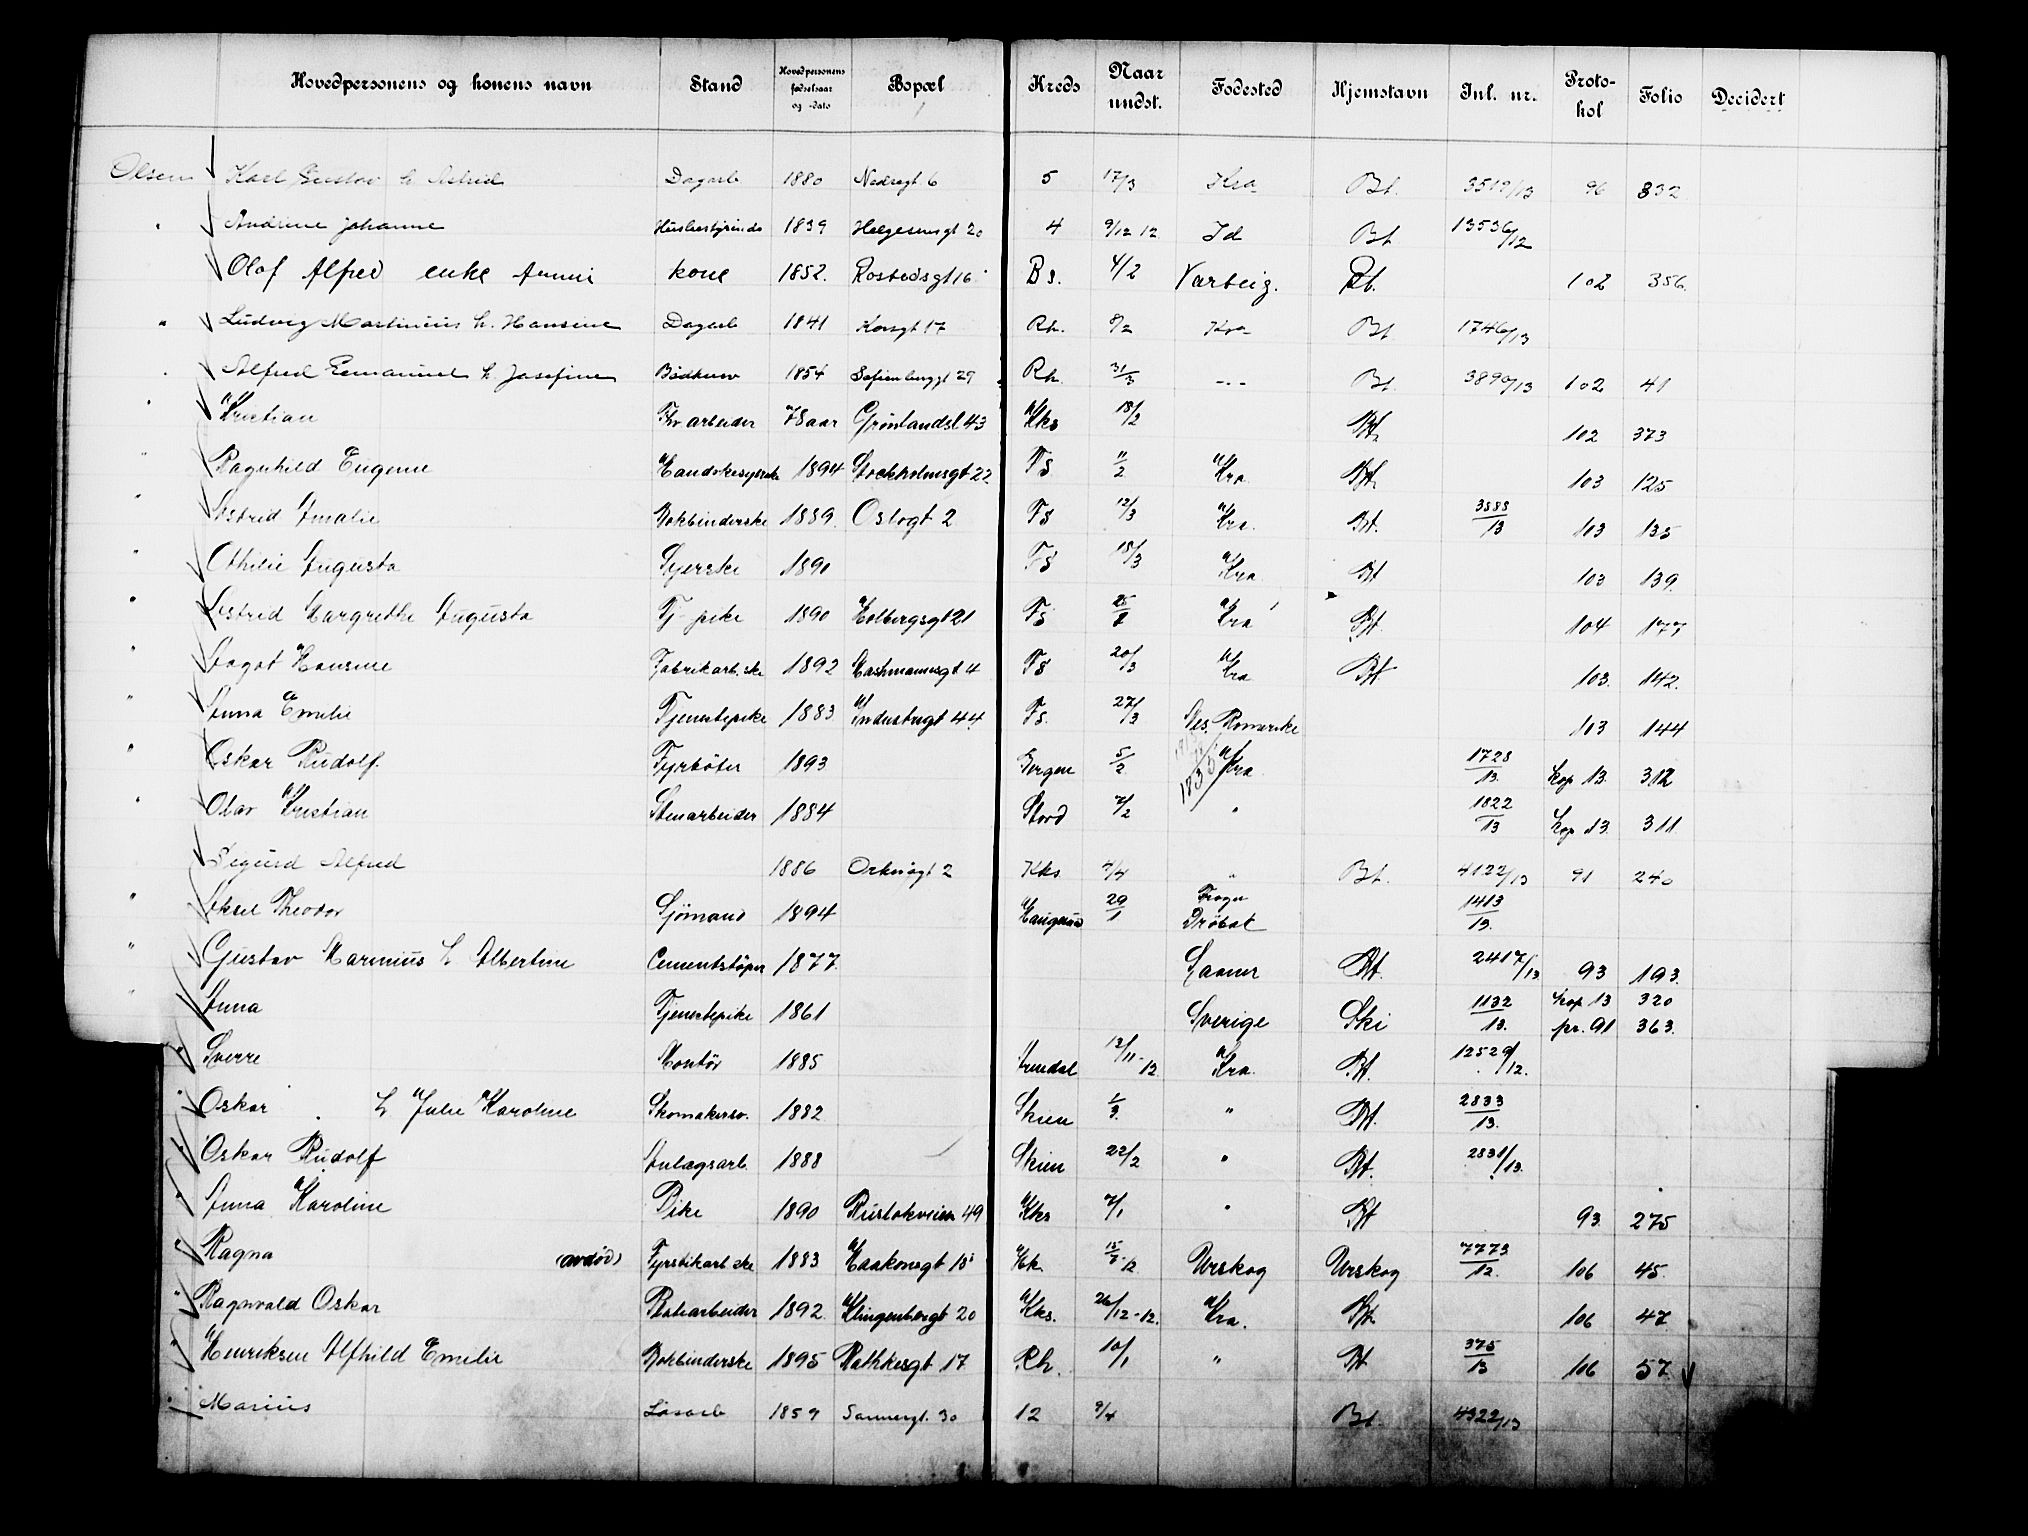 Hovedpersonens og konens navn Stand Hovedpersonens fødselsaar og -dato Bopæl Kreds Naar undst. Fødested Hjemstavn Inl. nr. Protokol Folio Decidert
Olsen Karl Gustav h. Astrid Dagarb 1880 Nedregt 6 5 17/3 Kra Bt. 3519/13 96 832
" Andrine Johanne Husbestyrinde 1839 Helgesensgt 20 4 9/12 12 Id Bt 13536/12
Olaf Alfred enke Annie kone 1852. Rostedsgt 16 Bs. 4/2 Varteig. Bt. 102 356.
" Ludvig Martinius h. Hansine Dagarb 1841 Korsgt 17 Rh. 8/2 Kra Bt 1746/13
" Alfred Emanuel h. Josefine Bødkersv 1854 Sofienberggt 29 Rh. 31/3 --- Bt. 3890/13 102 41
" Kristian Thv arbeider 78 aar Grønlandsl 43 Kks 18/2 Bt. 102 373
" Ragnhild Eugenie Handskesyerske 1894 Stockholmsgt 22 Fs 11/2 Kra. Bt. 103 125
" Astrid Amalie Bokbinderske 1889. Oslogt 2 Fs 12/3 Kra. Bt. 3888/13 103 135
" Othilie Augusta Syerske 1890 Fs 18/3 Kra. Bt 103 139.
" Astrid Margrethe Augusta Tj. pike 1890 Holbergsgt 21 Fs Kra Bt. 104 177
" Dagot Hansine Fabrikarb.ske 1892 Mashmannsgt 4 Fs 20/3 Kra Bt 103. 142.
" Anna Emilie Tjenestepike 1883 Industrigt 44. Fs. 27/3 Nes. Romerike 103 144
" Oskar Rudolf. Fyrbøter 1893 Bergen 5/2 1735/ Kra. 1728/13. Kop 13. 312
" Olav Kristian Stenarbeider 1884 Stord 7/2 " 1822/13 Kop 13. 311
Sigurd Alfred 1886 Orknøgt 2 Kks 4/4 " Bt. 4122/13 91 240
" Aksel Theodor Sjömand 1894 Haugesund 29/1 Frogn Drøbak 1413/13.
" Gustav Marinius h Albertine Cementstøper 1877. Lavner Bt. 2417/13 93 193.
" Anna Tjenestepike 1861 Sverige Ski 1132/13. Kop 13 320
pr. 91 363.
" Sverre Montør 1885 Arendal 12/11-12 Kra. Bt. 12529/12.
" Oskar h Julie Karoline Skomakersv. 1882 Skien 1/3. " Bt. 2833/13.
" Oskar Rudolf Anlægsarb. 1888 Skien 22/2 " Bt. 2831/13.
" Anna Karoline Pike 1890 Ruslokveien 49 Kks 7/1 " Bt 93. 275
" Ragna (avdød) Fyrstikarb.ske 1883 Haakonsgt 15 Hk 15/7-12 Urskog Urskog 7773/12. 106 45.
" Ragnvald Oskar Postarbeider 1892. Klingenbergt 20 Kks. 26/12-12. Kra. Bt. 106 47.
" Henriksen Alfhild Emilie Bokbinderske 1895 Rathkesgt 17 Rh. 10/1 " Bt 375/13 106 57.
" Marius Løsarb 1859 Sannergt. 30 12 9/4 Bt. 4322/13